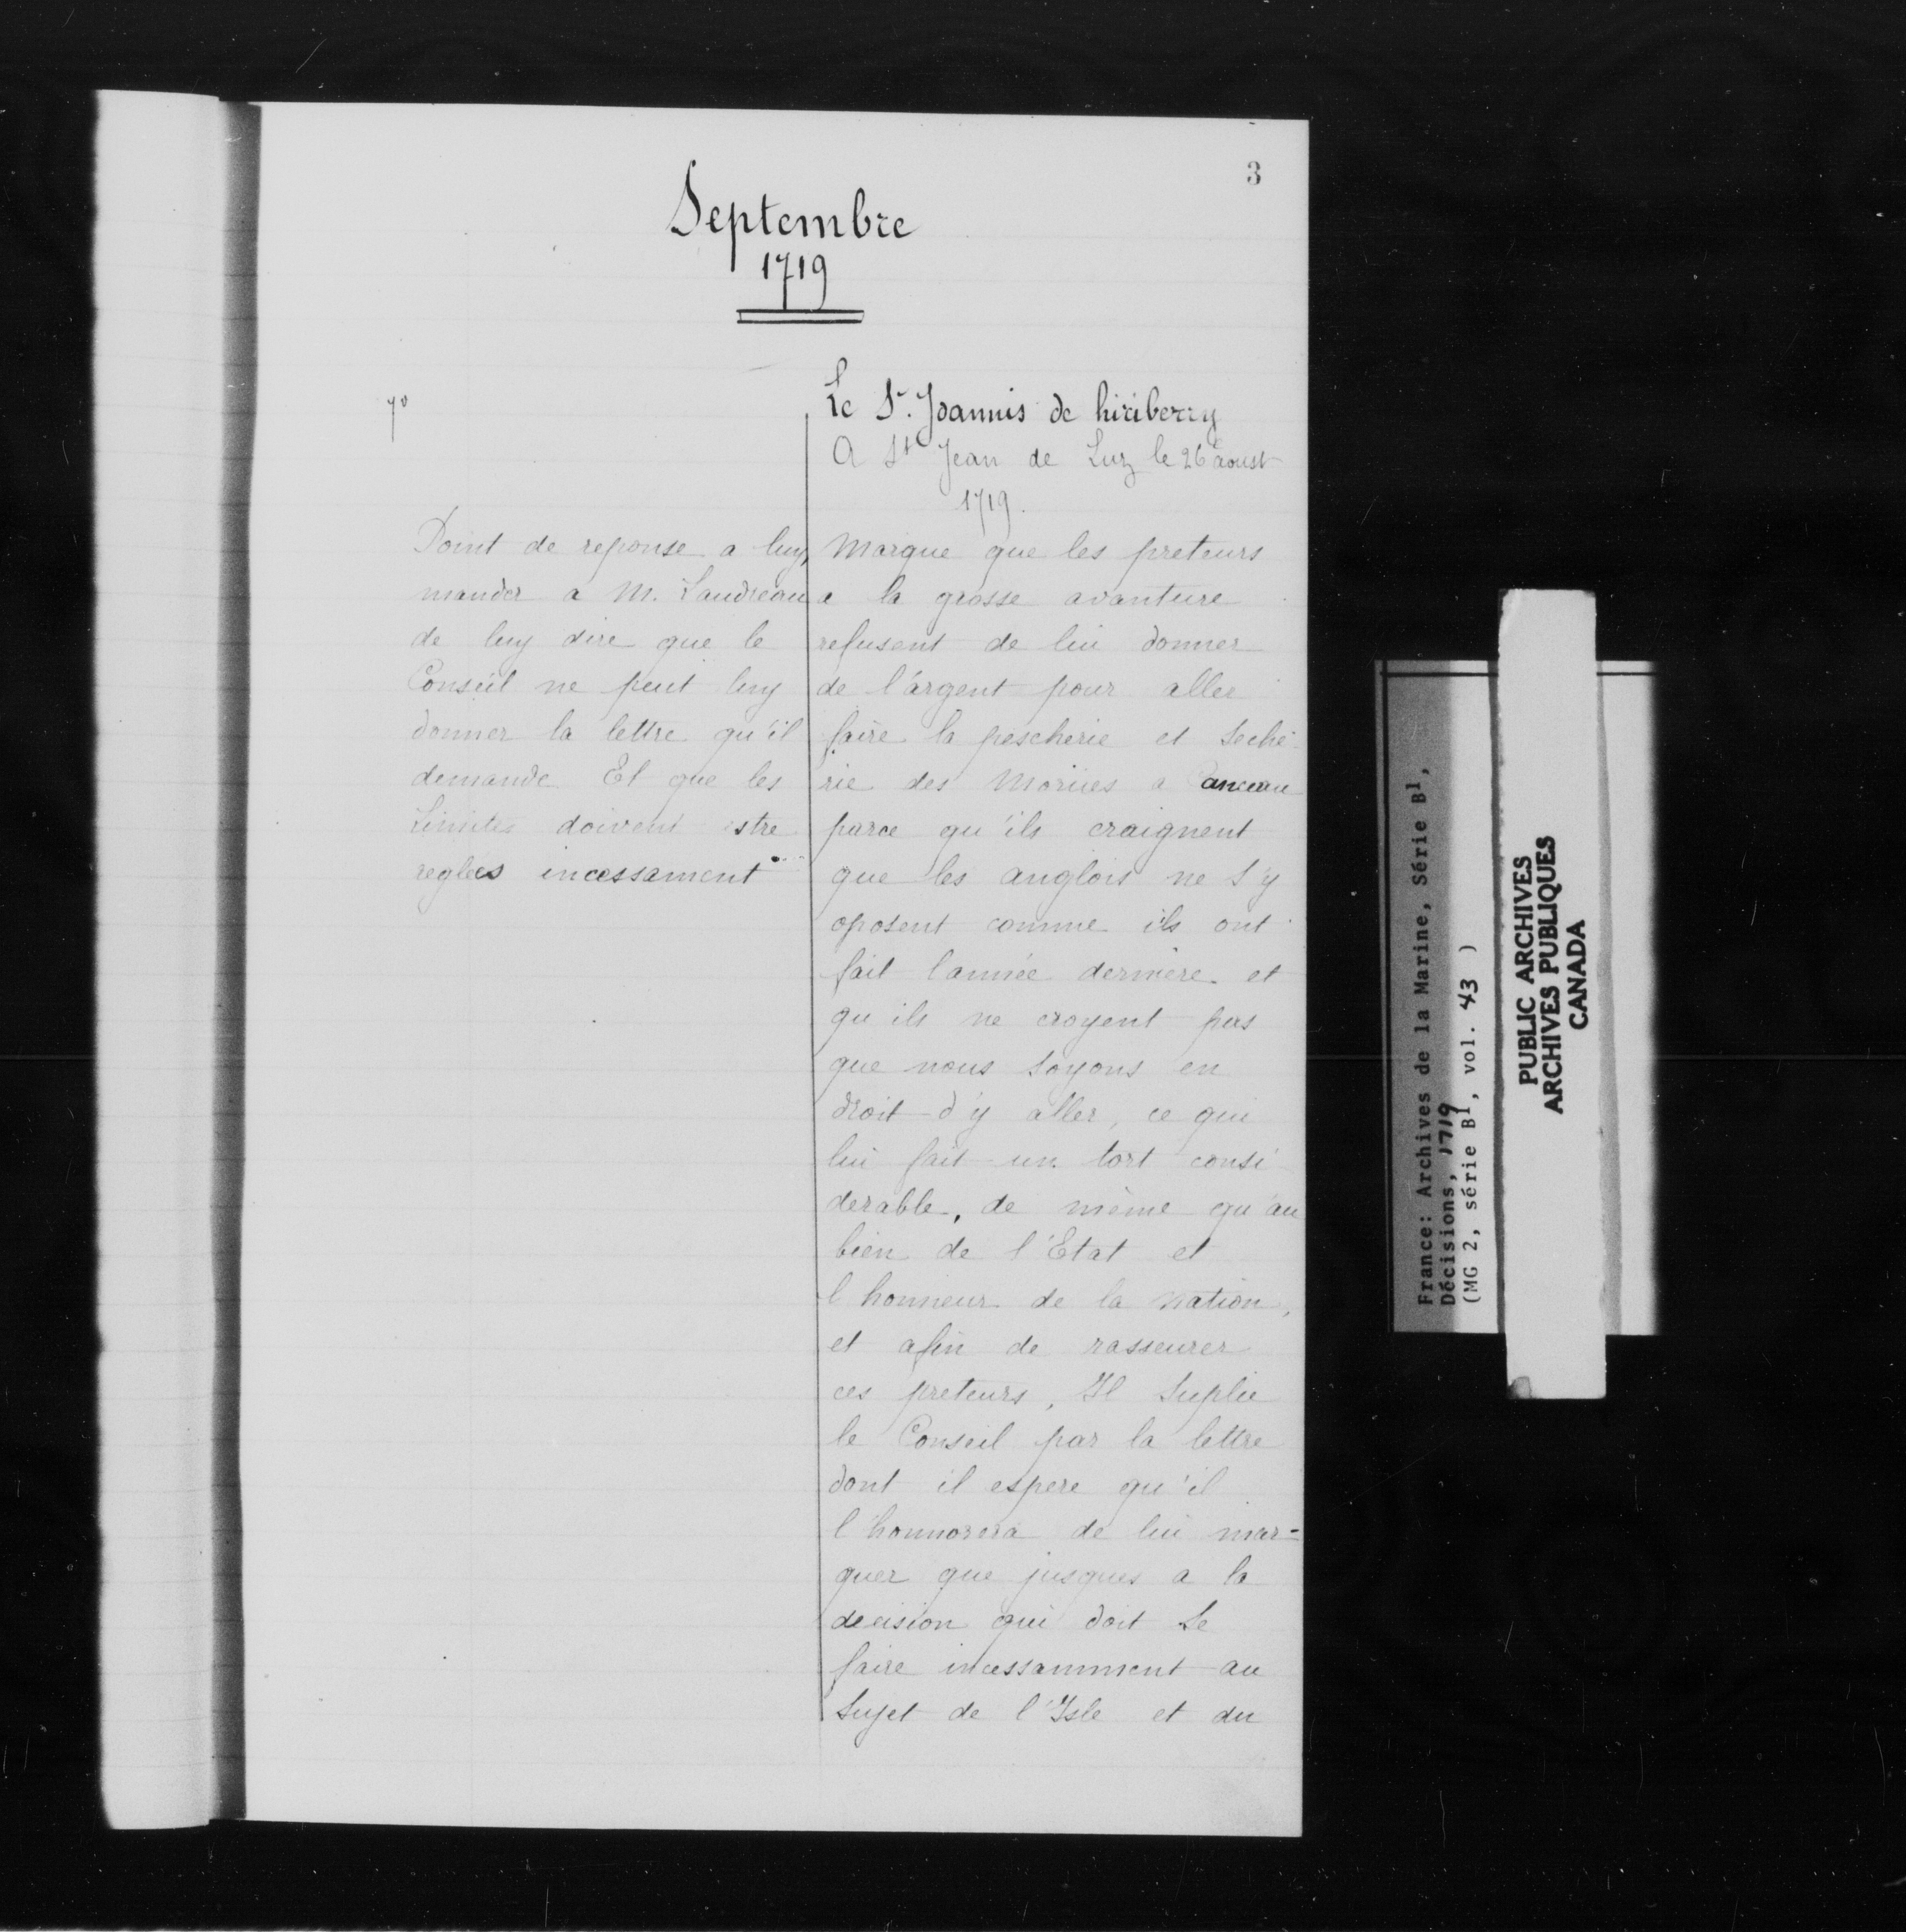 3
Septembre
1719
7º
Point de reponse a luy,
mander a M. Laudreau
de luy dire que le
Conseil ne peut luy
donner la lettre qu'il
demande Et que les
Limites doivent estre
reglées incessament
Le Sr. Joannis de hiriberry
A St Jean de Luz le 26 aoust
1719.
Marque que les preteurs
a la grosse avanture
refusent de lui donner
de l'argent pour aller
faire la pescherie et seche
rie des Morües a Canceau
parce qu'ils craignent
que les anglois ne s'y
oposent comme ils ont
fait l'année derniere et
qu'ils ne croyent pas
que nous soyons en
droit d'y aller, ce qui
lui fait un tort consi
derable, de même qu'au
bien de l'Etat et
l'honneur de la nation,
et afin de rasseurer
ces preteurs, Il suplie
le Conseil par la lettre
dont il espere qu'il
l'honnorera de lui mar=
quer que jusques a la
decision qui doit se
faire incessamment au
sujet de l'Isle et du
France: Archives de la Marine, Série B1,
Décisions, 1719
(MG 2, série B1, vol. 43 )
PUBLIC ARCHIVES
ARCHIVES PUBLIQUES
CANADA